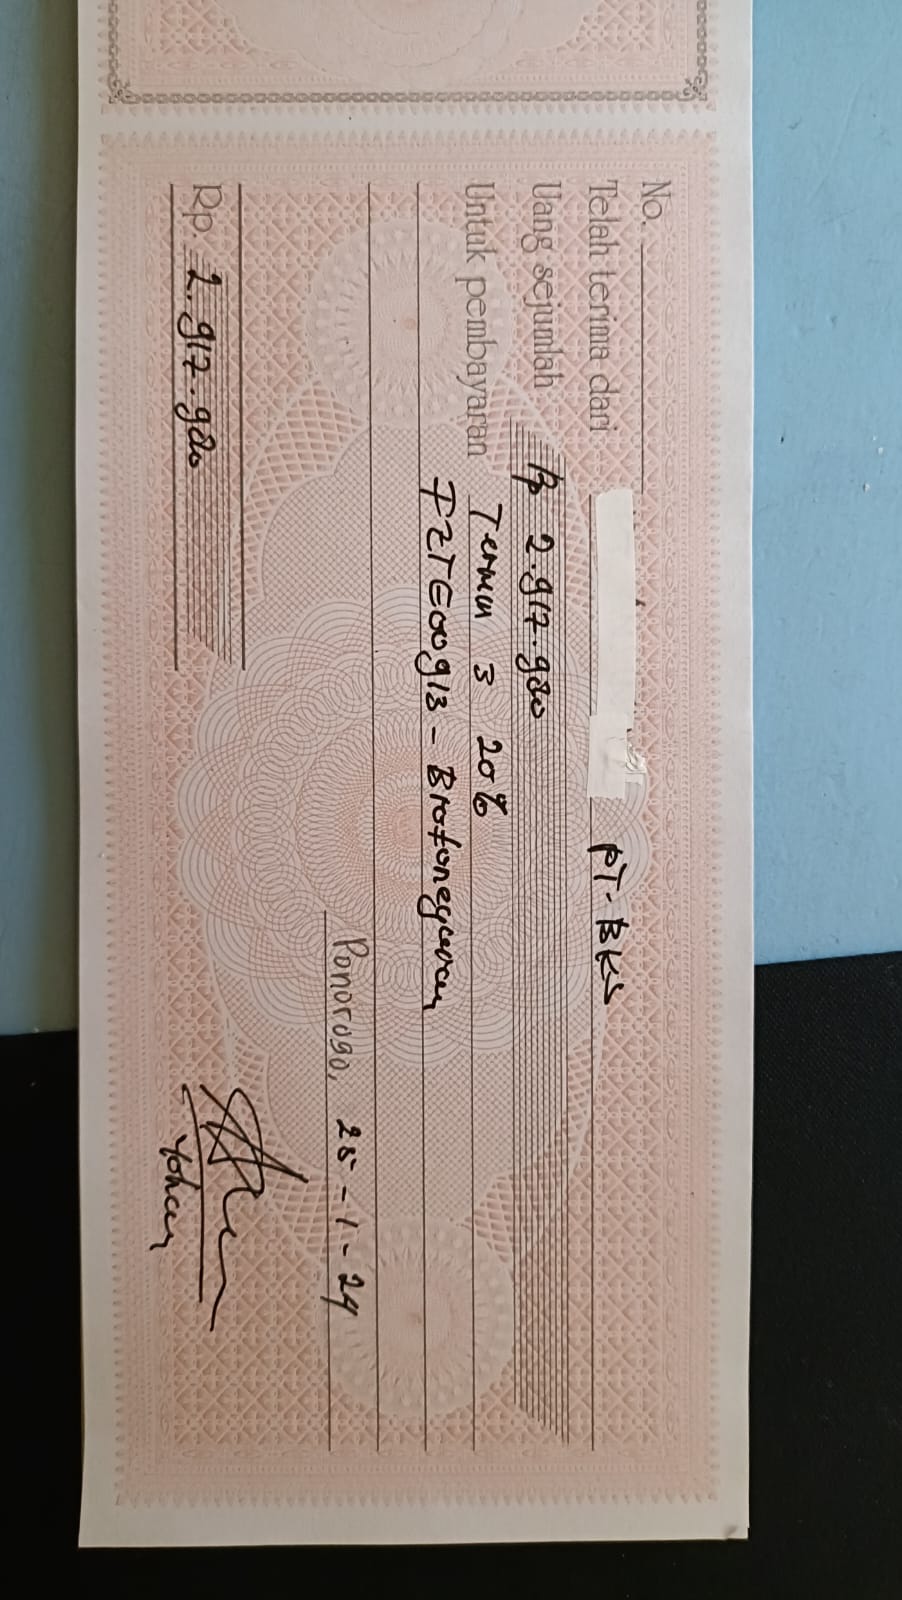 No.
Telah terima dari PT. BKS
Uang sejumlah Rp 2.917.980
Untuk pembayaran Termin 3 20%
FZTE00913 - Brotonegaran
Ponorogo, 25 - 1 - 24
Rp. 2.917.980
Yohan